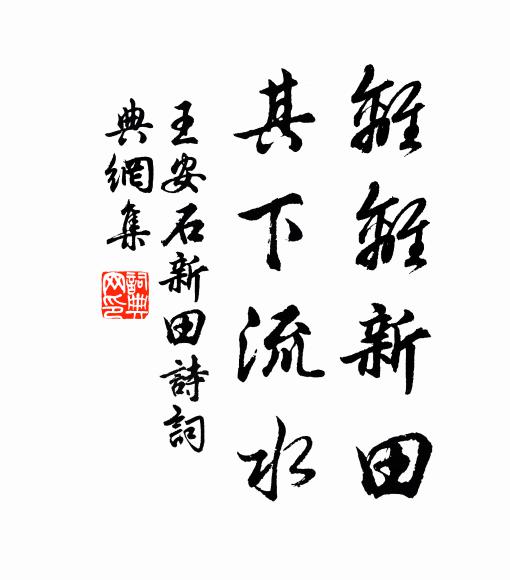 離離新田
其下流水
王安石新田詩詞
典網集
詞典
网印